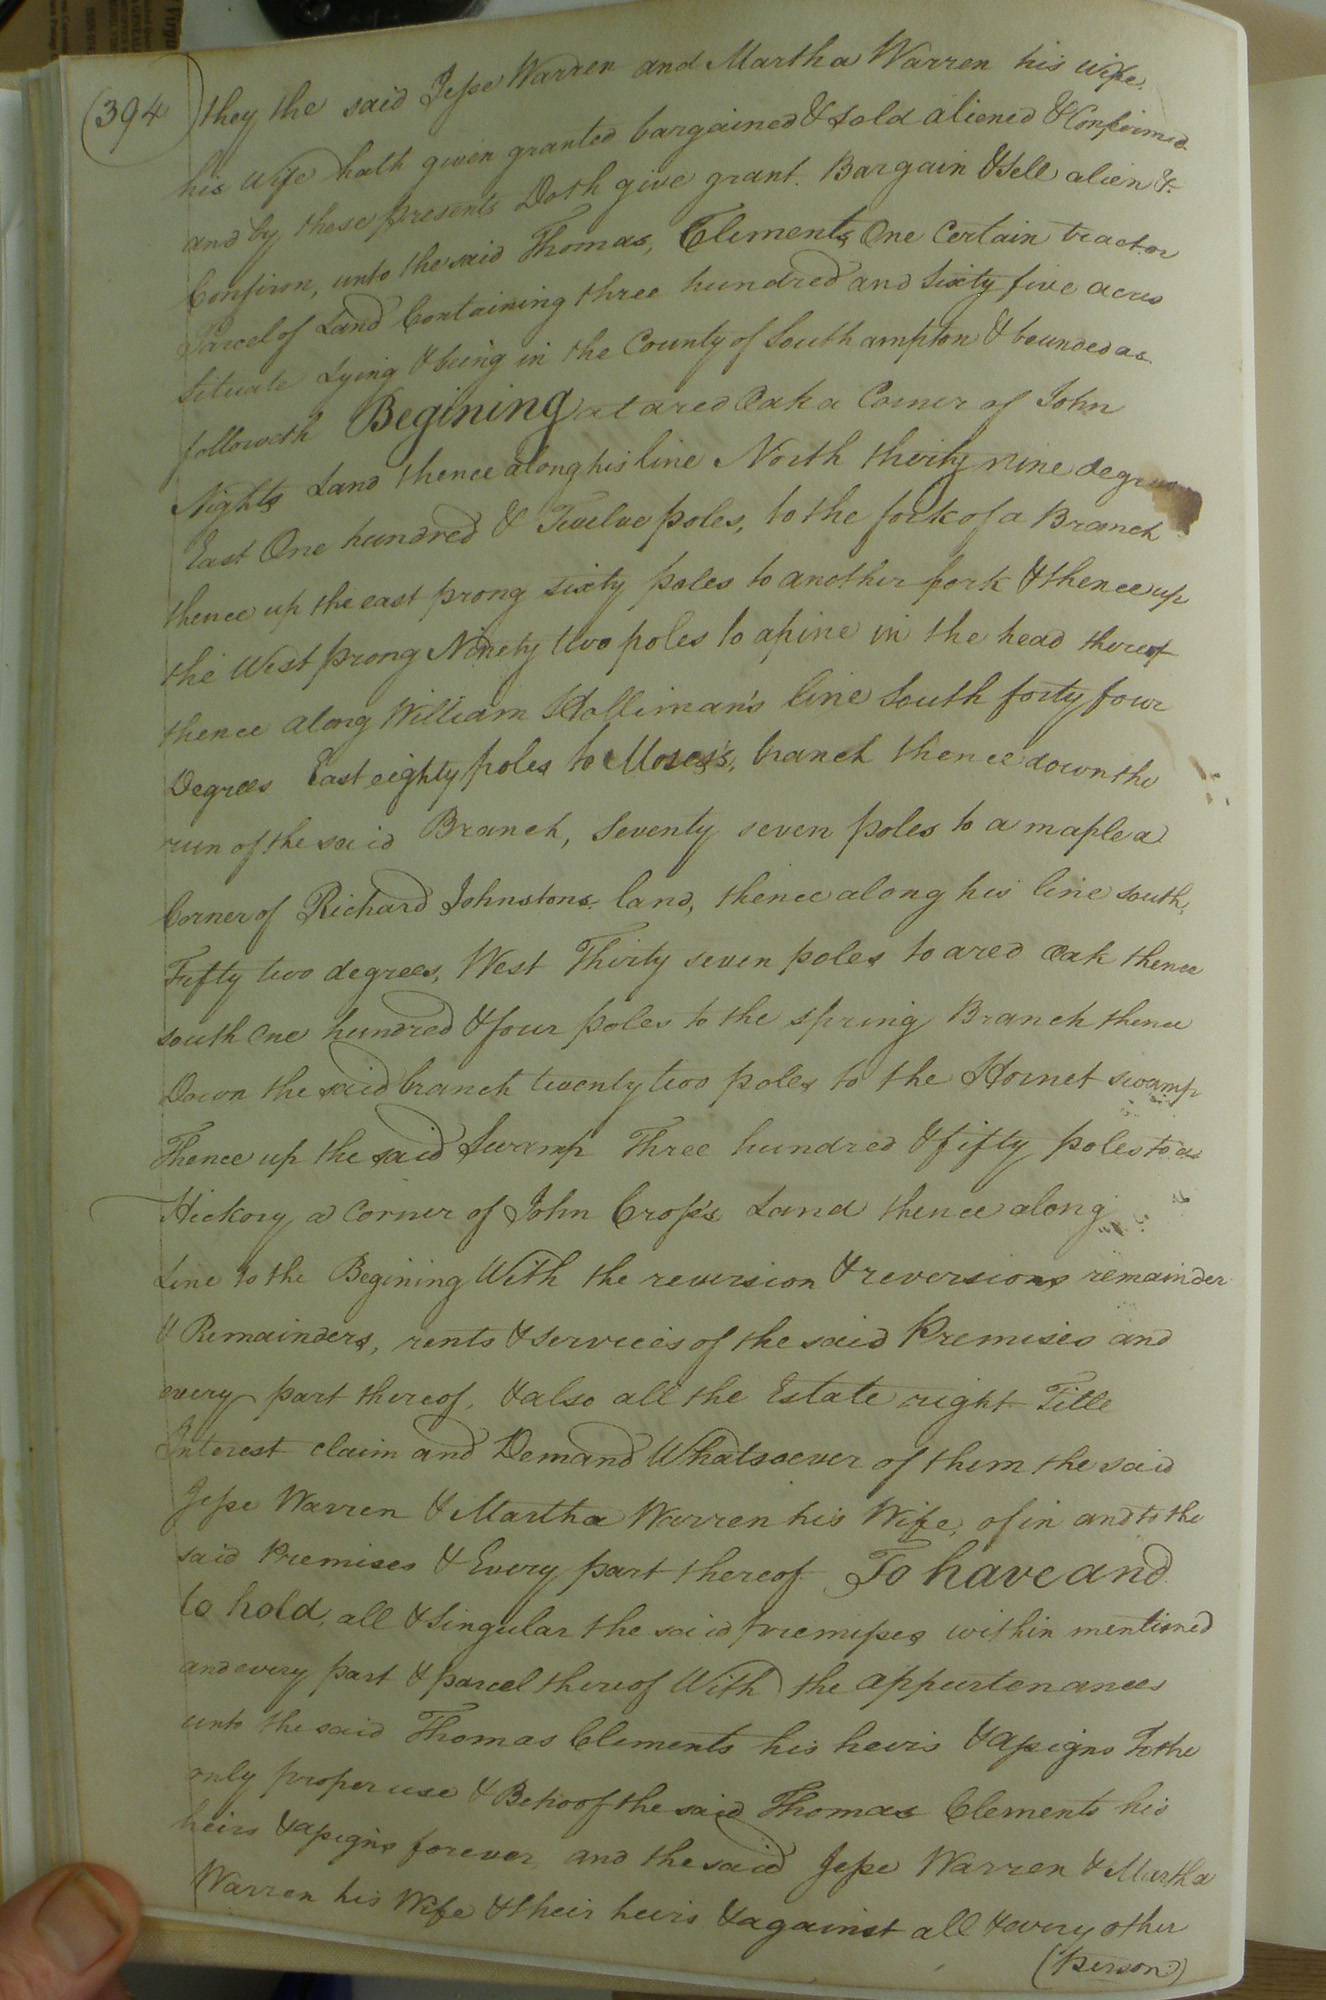 (394) they the said Jesse Warren and Martha Warren his wife
his Wife hath given granted bargained & sold aliened & Confirmed
and by these presents Doth give grant. Bargain & Sell alien &
Confirm, unto the said Thomas, Clements, One Certain tract or
Parcel of Land Containing three hundred and Sixty five acres
Situate Lying & being in the County of Southampton & bounded as
followeth Begining at a red Oak a Corner of John
Nights Land thence along his line North thirty nine degrees
East One hundred & Twelve poles, to the fork of a Branch
thence up the east prong sixty poles to another fork & thence up
the West prong Ninety two poles to a pine in the head thereof
thence along William Holliman's line South forty four
Degrees East eighty poles to Moses's, branch thence down the
run of the said Branch, Seventy seven poles to a maple a
Corner of Richard Johnstons land, thence along his line south,
Fifty two degrees, West Thirty seven poles to a red Oak thence
south One hundred & four poles to the spring Branch thence
Down the said branch twenty two poles to the Hornet swamp
Thence up the said Swamp Three hundred & fifty poles to a
Hickory a Corner of John Crop's Land thence along
Line to the Begining With the reversion & reversions remainder
& Remainders, rents & services of the said Premises and
every part thereof, & also all the Estate right Title
Interest claim and Demand Whatsoever of them the said
Jesse Warren & Martha Warren his Wife, of in and to the
said Premises & Every part thereof To have and
to hold, all & Singular the said premises within mentioned
and every part & parcel thereof With the appurtenances
unto the said Thomas Clements his heirs & assigns To the
only proper use & Behoof the said Thomas Clements his
heirs & assigns forever, and the said Jesse Warren & Martha
Warren his Wife & their heirs & against all & every other
(Person)